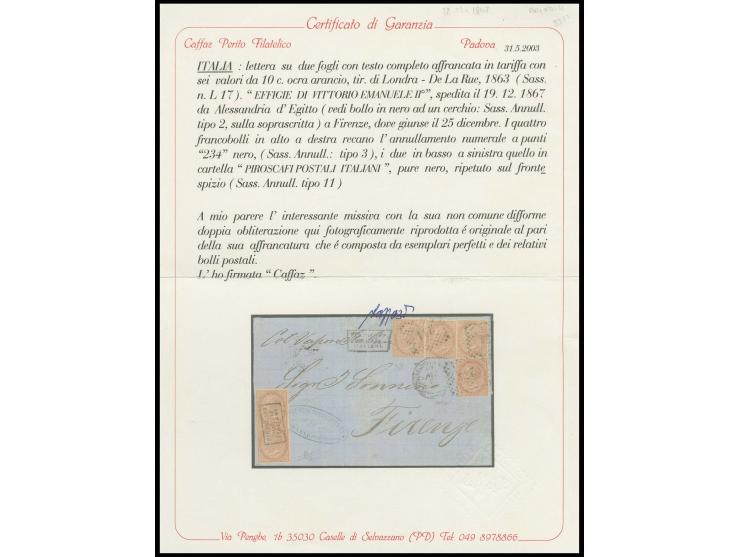 Certificato di Garanzia
Caffaz Perito Filatelico
Padova 31.5.2003
ITALIA : lettera su due fogli con testo completo affrancata in tariffa con
sei valori da 10 c. ocra arancio, tir. di Londra - De La Rue, 1863 ( Sass.
n. L 17 ). “ EFFIGIE DI VITTORIO EMANUELE II°”, spedita il 19. 12. 1867
da Alessandria d’ Egitto ( vedi bollo in nero ad un cerchio: Sass. Annull.
tipo 2, sulla soprascritta ) a Firenze, dove giunse il 25 dicembre. I quattro
francobolli in alto a destra recano l’ annullamento numerale a punti
“234” nero, ( Sass. Annull.: tipo 3 ), i due in basso a sinistra quello in
cartella “ PIROSCAFI POSTALI ITALIANI ”, pure nero, ripetuto sul fronte
spizio ( Sass. Annull. tipo 11 )
A mio parere l’ interessante missiva con la sua non comune difforme
doppia obliterazione qui fotograficamente riprodotta é originale al pari
della sua affrancatura che é composta da esemplari perfetti e dei relativi
bolli postali.
L’ ho firmata “ Caffaz ”.
Col Vapore Italiano
ITALIANI
Sigr J. Sonnino
Firenze
Via Penghe, 1b 35030 Caselle di Selvazzano (PD) Tel: 049 8978866